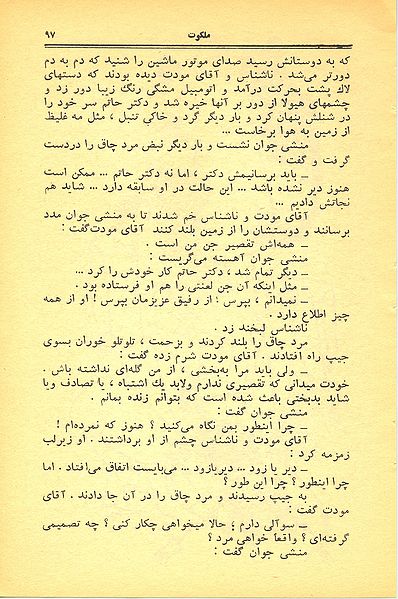 ملکوت ۹۷
که به دوستانش رسید صدای موتور ماشین را شنید که دم به دم
دورتر می‌شد . ناشناس و آقای مودت دیده بودند که دستهای
لاك پشت بحرکت درآمد و اتومبیل مشکی رنگ زیبا دور زد و
چشمهای هیولا از دور بر آنها خیره شد و دکتر حاتم سر خود را
در شنلش پنهان کرد و بار دیگر گرد و خاکی تنبل ، مثل مه غلیظ
از زمین به هوا برخاست ...
منشی جوان نشست و بار دیگر نبض مرد چاق را دردست
گرفت و گفت :
ــ باید برسانیمش دکتر ، اما نه دکتر حاتم ... ممکن است
هنوز دیر نشده باشد ... این حالت در او سابقه دارد ... شاید هم
نجاتش دادیم ...
آقای مودت و ناشناس خم شدند تا به منشی جوان مدد
برسانند و دوستشان را از زمین بلند کنند آقای مودت‌گفت :
ــ همه‌اش تقصیر جن من است .
منشی جوان آهسته می‌گریست :
ــ دیگر تمام شد ، دکتر حاتم کار خودش را کرد ...
ــ مثل اینکه آن جن لعنتی را هم او فرستاده بود .
ــ نمیدانم ، بپرس ؛ از رفیق عزیزمان بپرس ! او از همه
چیز اطلاع دارد .
ناشناس لبخند زد .
مرد چاق را بلند کردند و بزحمت ، تلوتلو خوران بسوی
جیپ راه افتادند . آقای مودت شرم زده گفت :
ــ ولی باید مرا به‌بخشی ، از من گله‌ای نداشته باش .
خودت میدانی که تقصیری ندارم ولابد یك اشتباه ، یا تصادف ویا
شاید بدبختی باعث شده است که بتوانم زنده بمانم .
منشی جوان گفت :
ــ چرا اینطور بمن نگاه می‌کنید ؟ هنوز که نمرده‌ام !
آقای مودت و ناشناس چشم از او برداشتند . او زیرلب
زمزمه کرد :
ــ دیر یا زود ... دیریازود ... می‌بایست اتفاق می‌افتاد . اما
چرا اینطور ؟ چرا این طور ؟
به جیپ رسیدند و مرد چاق را در آن جا دادند . آقای
مودت گفت :
ــ سوآلی دارم ؛ حالا میخواهی چکار کنی ؟ چه تصمیمی
گرفته‌ای ؟ واقعاً خواهی مرد ؟
منشی جوان گفت :